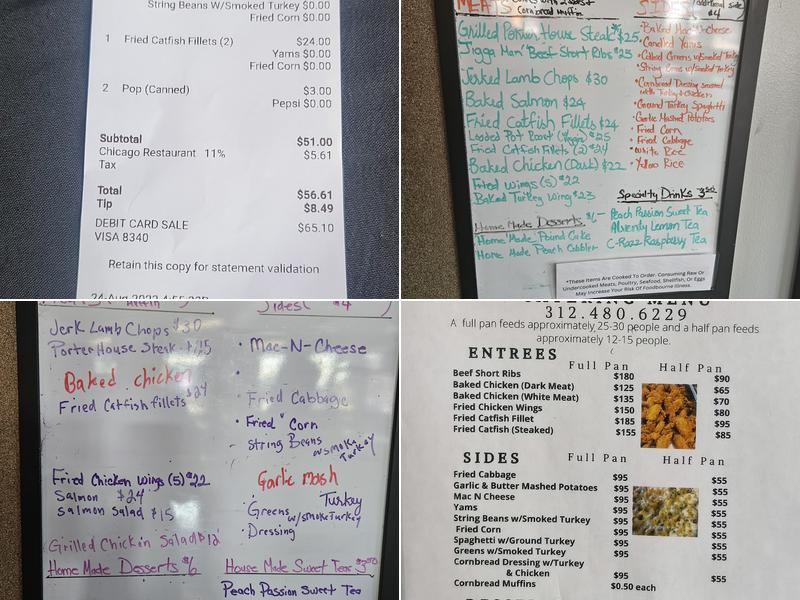 String Beans W/Smoked Turkey $0.00
Fried Corn $0.00
1 Fried Catfish Fillets (2) $24.00
Yams $0.00
Fried Corn $0.00
2 Pop (Canned) $3.00
Pepsi $0.00
Subtotal $51.00
Chicago Restaurant 11% $5.61
Tax
Total $56.61
Tip $8.49
DEBIT CARD SALE $65.10
VISA 8340
Retain this copy for statement validation
MEATS
Cornbread Muffin
SIDES
$4
Grilled Porter House Steak $25
Jigga Man "Beef Short Ribs $25
Jerked Lamb Chops $30
Baked Salmon $24
Fried Catfish Fillets $24
Fried Catfish Fillets (2) $24
Baked Chicken (Dark) $22
Fried Wings (5) $22
Baked Turkey Wing $23
Home Made Desserts
Home Made Pound Cake
Home Made Peach Cobbler
Baked Mac-N-Cheese
Candied Yams
Collard Greens w/Smoked Turkey
String Beans w/Smoked Turkey
Cornbread Dressing
with Turkey & Chicken
Ground Turkey Spaghetti
Garlic Mashed Potatoes
Fried Corn
Fried Cabbage
White Rice
Yellow Rice
Specialty Drinks 3.50
Peach Passion Sweet Tea
Lemon Tea
C-Razz Raspberry Tea
*These Items Are Cooked To Order. Consuming Raw Or
Undercooked Meats, Poultry, Seafood, Shellfish, Or Eggs
May Increase Your Risk Of Foodbourne Illness.
Jerk Lamb Chops $30
Porter House Steak
Baked chicken
$24
Fried Catfish fillets
Fried Chicken wings (5) $22
Salmon $24
Salmon Salad $15
Grilled Chicken Salad
Home Made Desserts $6
Sides $4
• Mac-N-Cheese
Fried Cabbage
• Fried Corn
String Beans
w/smoke Turkey
Garlic mash
Turkey
• Greens w/smoke Turkey
• Dressing
House Made Sweet Teas 3.50
Peach Passion Sweet Tea
312.480.6229
A full pan feeds approximately 25-30 people and a half pan feeds
approximately 12-15 people.
ENTREES
Full Pan Half Pan
Beef Short Ribs $180 $90
Baked Chicken (Dark Meat) $125 $65
Baked Chicken (White Meat) $135 $70
Fried Chicken Wings $150 $80
Fried Catfish Fillet $185 $95
Fried Catfish (Steaked) $155 $85
SIDES Full Pan Half Pan
Fried Cabbage $95 $55
Garlic & Butter Mashed Potatoes $95 $55
Mac N Cheese $95 $55
Yams $95 $55
String Beans w/Smoked Turkey $95 $55
Fried Corn $95 $55
Spaghetti w/Ground Turkey $95 $55
Greens w/Smoked Turkey $95 $55
Cornbread Dressing w/Turkey
& Chicken $95 $55
Cornbread Muffins $0.50 each